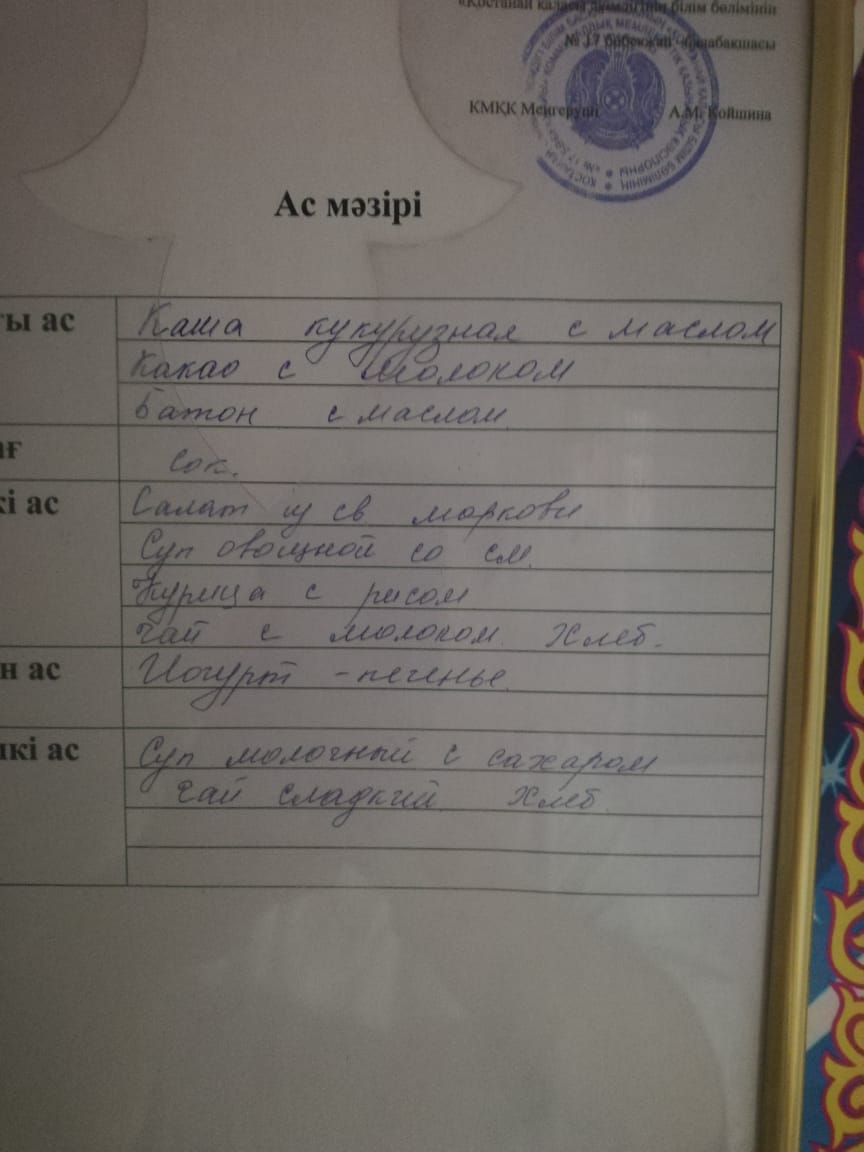 «Қостанай қаласы әкімдігінің білім бөлімінің
№ 17 бөбекжай-балабақшасы
КМҚК Меңгеруші А.М. Койшина
Ас мәзірі
ғы ас
Каша кукурузная с маслом
Какао с молоком
Батон с маслом
ағ
Сок.
кі ас
Салат из св моркови
Суп овощной со см.
Курица с рисом
Чай с молоком. Хлеб.
н ас
Йогурт - печенье.
шкі ас
Суп молочный с сахаром
Чай сладкий. Хлеб.